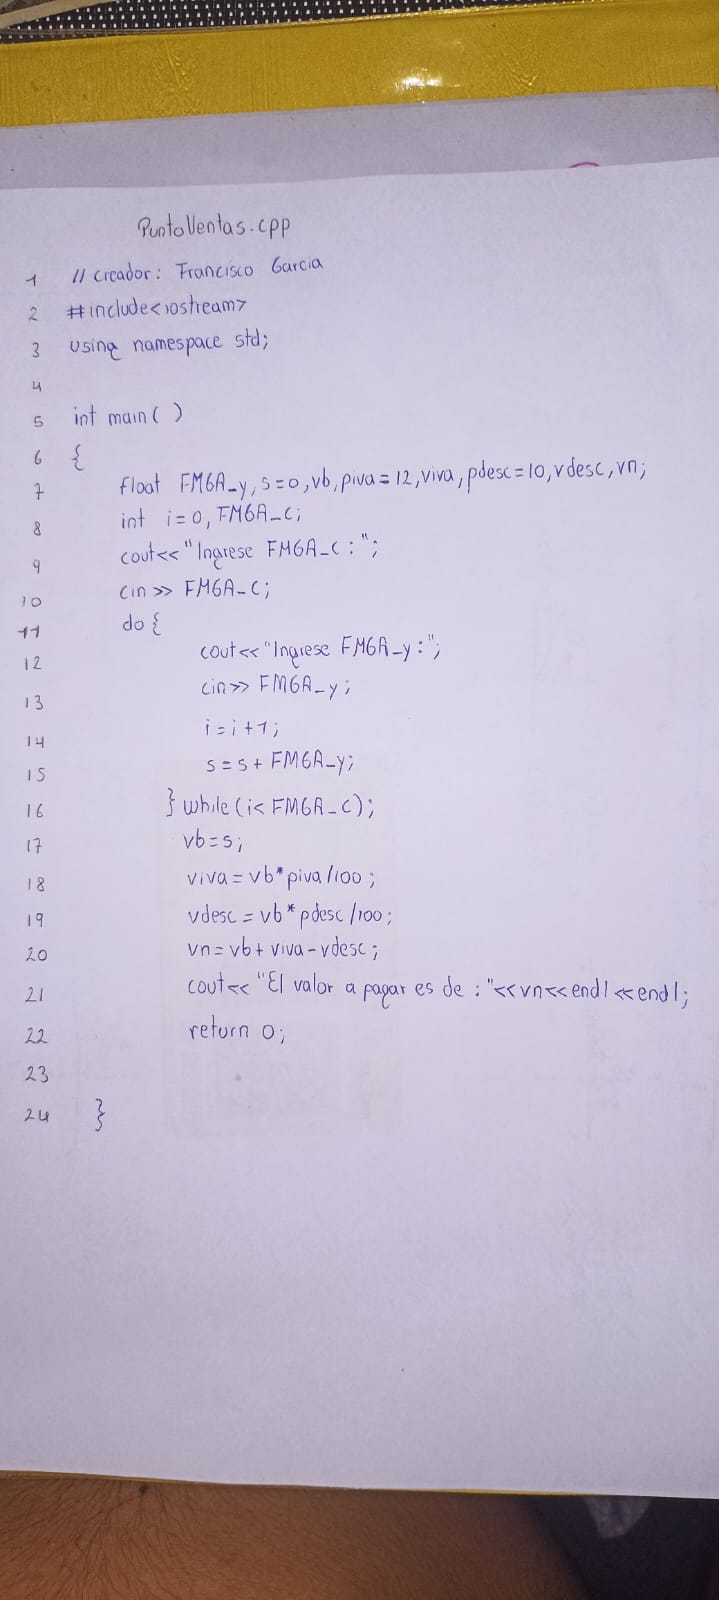 PuntoVentas.cpp
1 // creador: Francisco Garcia
2 #include<iostream>
3 using namespace std;
4
5 int main( )
6 {
7 float FMGA_y, s=0, vb, piva=12, viva, pdesc=10, vdesc, vn;
8 int i=0, FMGA_C;
9 cout<<"Ingrese FMGA_C:";
10 cin>> FMGA_C;
11 do {
12 cout<<"Ingrese FMGA_y:";
13 cin>> FMGA_y;
14 i=i+1;
15 s=s+ FMGA_y;
16 } while (i< FMGA_C);
17 vb=s;
18 viva=vb*piva/100;
19 vdesc=vb*pdesc/100;
20 vn=vb+viva-vdesc;
21 cout<< "El valor a pagar es de :"<<vn<<endl<<endl;
22 return 0;
23
24 }